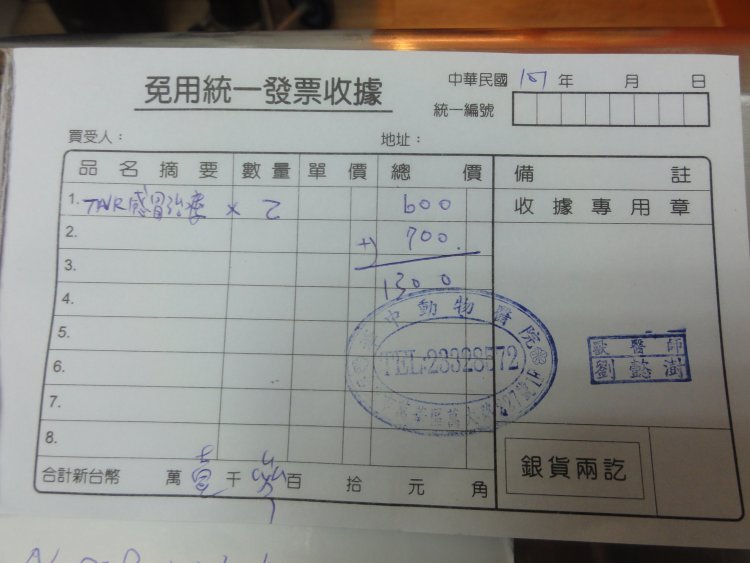 免用統一發票收據
中華民國 101 年 月 日
統一編號
買受人：
地址：
品名摘要 數量 單價 總價 備註
收據專用章
1. TNR感冒治療 × 2 600
2. +) 700
3. 1300
4.
5.
6.
7.
8.
中動物醫院
TEL:23328572
獸醫師
劉懿澍
合計新台幣 萬 壹 千 百 拾 元 角
銀貨兩訖